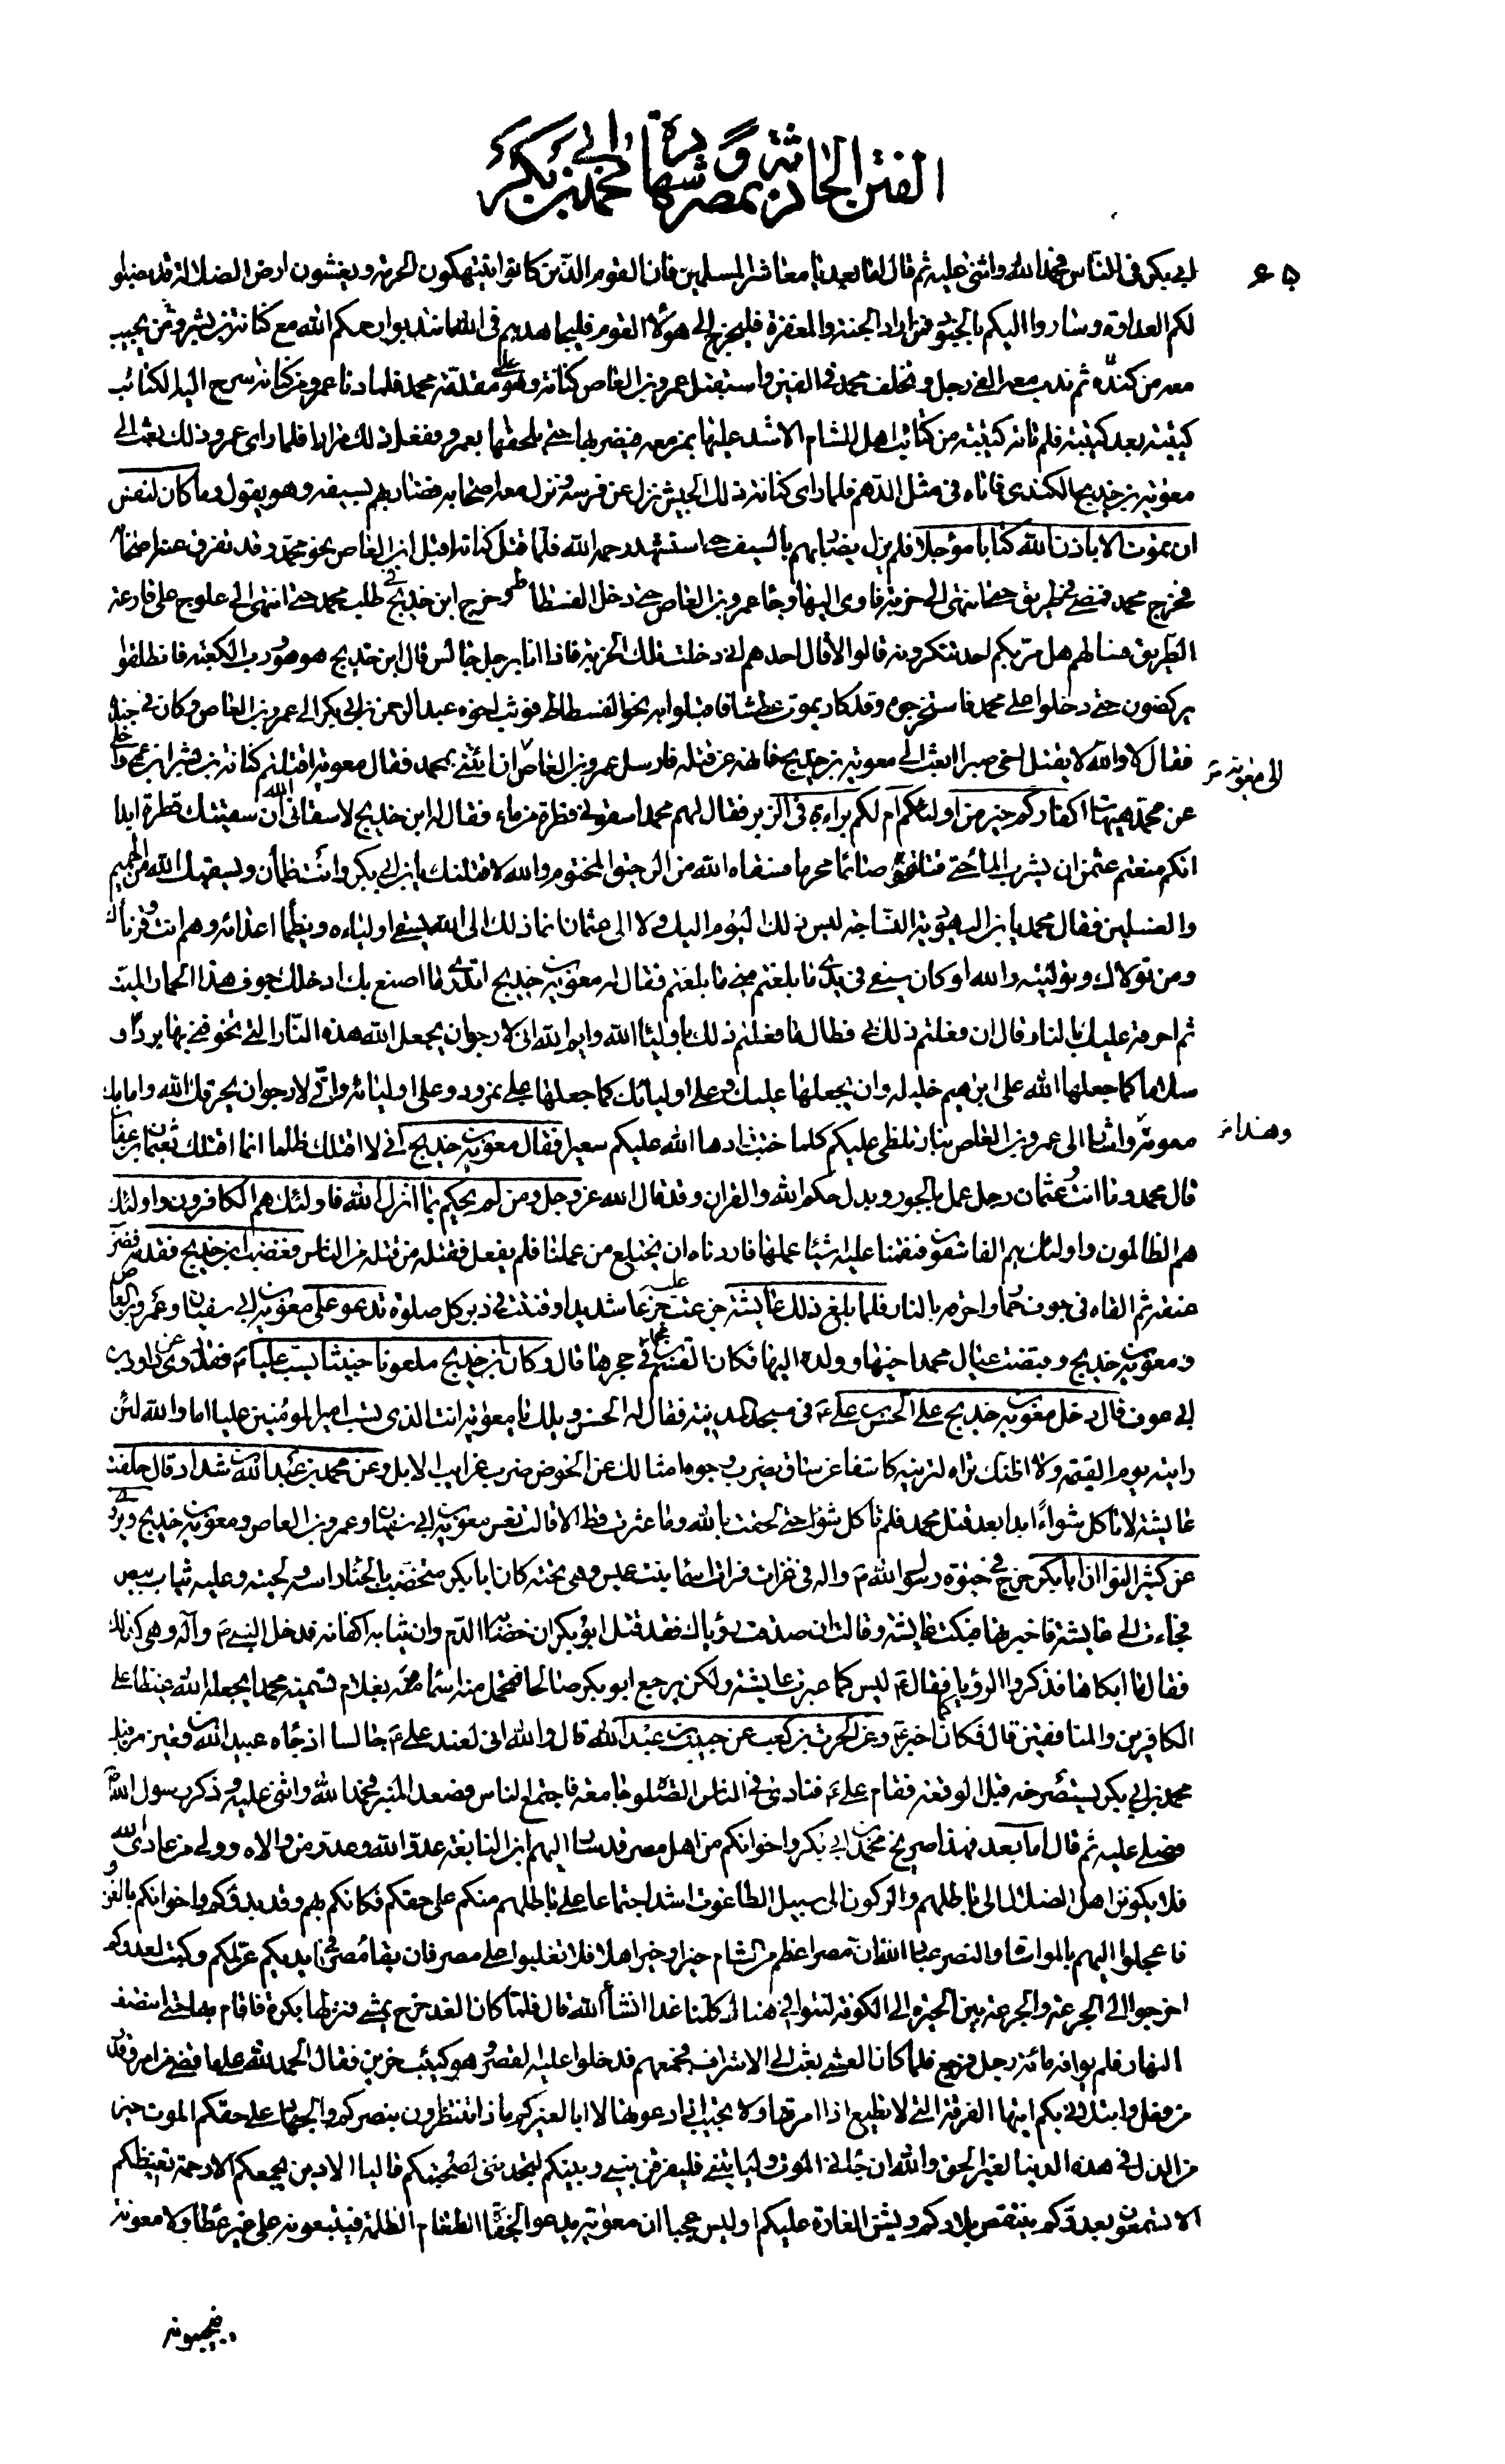 الفتن الحادثة بمصر و شهادة محمد بن ابي بكر
ابي بكر في الناس فحمد الله واثنى عليه ثم قال اما بعد يا معاشر المسلمين فان القوم الذين كانوا ينتهكون الحرمة ويغشون ارض الضلالة قد نصبوا
۶۵
لكم العداوة وساروا اليكم بالجنود فمن اراد الجنة والمغفرة فليخرج الى هؤلاء القوم فليجاهدهم في الله انتدبوا رحمكم الله مع كنانة بن بشر ومن يجيب
معه من كندة ثم ندب معه الفي رجل وتخلف محمد في الفين واستقبل عمرو بن العاص كنانة وهو على مقدمة محمد فلما دنا عمرو من كنانة سرح اليه الكتائب
كتيبة بعد كتيبة فلم تاته كتيبة من كتائب اهل الشام الا شد عليها بمن معه فيضربها حتى يلحقها بعمرو ففعل ذلك مرارا فلما راى عمرو ذلك بعث الى
معوية بن خديج الكندي فاتاه في مثل الدهم فلما راى كنانة ذلك الجيش نزل عن فرسه ونزل معه اصحابه فضاربهم بسيفه وهو يقول وما كان لنفس
ان تموت الا باذن الله كتابا مؤجلا فلم يزل يضاربهم بالسيف حتى استشهد رحمه الله فلما قتل كنانة اقبل ابن العاص نحو محمد وقد تفرق عنه اصحابه
فخرج محمد فمضى في طريق حتى انتهى الى خربة فاوى اليها وجاء عمرو بن العاص حتى دخل الفسطاط وخرج ابن خديج في طلب محمد حتى انتهى الى علوج على قارعة
الطريق فسالهم هل مر بكم احد تنكرونه قالوا لا قال احدهم اني دخلت تلك الخربة فاذا انا برجل جالس قال ابن خديج هو هو ورب الكعبة فانطلقوا
يركضون حتى دخلوا على محمد فاستخرجوه وقد كاد يموت عطشا فاقبلوا به نحو الفسطاط فوثب اخوه عبد الرحمن بن ابي بكر الى عمرو بن العاص وكان في جنده
فقال لا والله لا يقتل اخي صبرا ابعث الى معوية بن خديج فانهه عن قتله فارسل عمرو بن العاص ان ائتني بمحمد فقال معوية اقتلتم كنانة بن بشر ابن عمي واخلي
الى معوية
عن محمد هيهات اكفاركم خير من اولئكم ام لكم براءة في الزبر فقال لهم محمد اسقوني قطرة من ماء فقال له ابن خديج لا سقاني الله ان سقيتك قطرة ابدا
انكم منعتم عثمن ان يشرب الماء حتى قتلتموه صائما محرما فسقاه الله من الرحيق المختوم والله لاقتلنك يا بن ابي بكر وانت ظمآن ويسقيك الله من الحميم
والغسلين فقال محمد يا بن اليهودية النساجة ليس ذلك اليوم اليك ولا الى عثمان انما ذلك الى الله يسقي اولياءه ويظمأ اعداءه وهم انت وقرناؤك
ومن تولاك وتوليته والله لو كان سيفي في يدي ما بلغتم مني ما بلغتم فقال له معوية بن خديج اتدري ما اصنع بك ادخلك جوف هذا الحمار الميت
ثم احرقه عليك بالنار قال ان فعلتم ذلك بي فطال ما فعلتم ذلك باولياء الله وايم الله اني لارجو ان يجعل الله هذه النار التي تخوفني بها بردا و
سلاما كما جعلها الله على ابرهيم خليله وان يجعلها عليك وعلى اوليائك كما جعلها على نمرود وعلى اوليائه واني لارجو ان يحرقك الله وامامك
معوية واشار الى عمرو بن العاص بنار تلظى عليكم كلما خبت زادها الله عليكم سعيرا فقال معوية بن خديج اني لا اقتلك ظلما انما اقتلك بعثمان بن عفان
وهذا
قال محمد وما انت وعثمان رجل عمل بالجور وبدل حكم الله والقران وقد قال الله عز وجل ومن لم يحكم بما انزل الله فاولئك هم الكافرون واولئك
هم الظالمون واولئك هم الفاسقون فنقمنا عليه اشياء عملها فاردناه ان يختلع من عملنا فلم يفعل فقتله من قتله من الناس فغضب ابن خديج فقدمه فضرب
عنقه ثم القاه في جوف حمار واحرقه بالنار فلما بلغ ذلك عايشة جزعت عليه جزعا شديدا وقنتت في دبر كل صلوة تدعو على معوية بن ابي سفيان وعمرو بن العاص
ومعوية بن خديج وقبضت عيال محمد اخيها وولده اليها فكان القاسم بن محمد في حجرها قال وكان ابن خديج ملعونا خبيثا يسب عليا فقد روى عن داود بن
ابي عوف قال دخل معوية بن خديج على الحسن بن علي في مسجد المدينة فقال له الحسن ويلك يا معوية انت الذي تسب امير المؤمنين عليا اما والله لئن
رايته يوم القيمة ولا اظنك تراه لترينه كاشفا عن ساق يضرب وجوه امثالك عن الحوض ضرب غرايب الابل وعن محمد بن عبد الله بن شداد قال حلفت
عايشة لا تاكل شواء ابدا بعد قتل محمد فلم تاكل شواء حتى لحقت بالله وما عثرت قط الا قالت تعس معوية بن ابي سفيان وعمرو بن العاص ومعوية بن خديج وروى
عن كثير النوا ان ابا بكر خرج في حيوة رسول الله ص واله في غزاة فرات اسماء بنت عميس وهي تحته كان ابا بكر متخضب بالحناء راسه ولحيته وعليه ثياب بيض
فجاءت الى عايشة فاخبرتها فبكت عايشة وقالت ان صدقت رؤياك فقد قتل ابو بكر ان خضابه الدم وان ثيابه اكفانه فدخل النبي ص وآله وهي كذلك
فقال ما ابكاها فذكروا الرؤيا فقال ليس كما عبرت عايشة ولكن يرجع ابو بكر صالحا فتحمل منه اسماء بغلام تسميه محمدا يجعله الله غيظا على
الكافرين والمنافقين قال فكان كما اخبر وعن الحرث بن كعب عن حبيب بن عبد الله قال والله اني لعند علي جالسا اذ جاءه عبد الله بن قعين من قبل
محمد بن ابي بكر يستصرخه قبل الوقعة فقام علي فنادى في الناس الصلوة جامعة فاجتمع الناس فصعد المنبر فحمد الله واثنى عليه وذكر رسول الله ص
فصلى عليه ثم قال اما بعد فهذا صريخ محمد بن ابي بكر واخوانكم من اهل مصر قد سار اليهم ابن النابغة عدو الله وعدو من والاه وولي من عادى الله
فلا يكونن اهل الضلال الى باطلهم والركون الى سبيل الطاغوت اشد اجتماعا على باطلهم منكم على حقكم فكانكم بهم وقد بدؤكم واخوانكم بالغزو
فاعجلوا اليهم بالمواساة والنصر عباد الله ان مصر اعظم من الشام خيرا وخير اهلا فلا تغلبوا على مصر فان بقاء مصر في ايديكم عز لكم وكبت لعدوكم
اخرجوا الى الجرعة والجرعة بين الحيرة الى الكوفة لنتوافى هناك كلنا غدا انشاء الله قال فلما كان الغد خرج يمشي فنزلها بكرة فاقام بها حتى انتصف
النهار فلم يوافه مائة رجل فرجع فلما كان العشي بعث الى الاشراف فجمعهم فدخلوا عليه القصر وهو كئيب حزين فقال الحمد لله على ما قضى من امر وقدر
من فعل وابتلاني بكم ايتها الفرقة التي لا تطيع اذا امرتها ولا تجيب اذا دعوتها لا ابا لغيركم ماذا تنتظرون بنصركم والجهاد على حقكم الموت خير
من الذل في هذه الدنيا لغير الحق والله ان جاءني الموت وليأتيني فليفرقن بيني وبينكم لتجدنني لصحبتكم قاليا الا دين يجمعكم الا حمية تغيظكم
الا تسمعون بعدوكم ينتقص بلادكم ويشن الغارة عليكم اوليس عجبا ان معوية يدعو الجفاة الطغام الظلمة فيتبعونه على غير عطاء ولا معونة
فيجيبونه